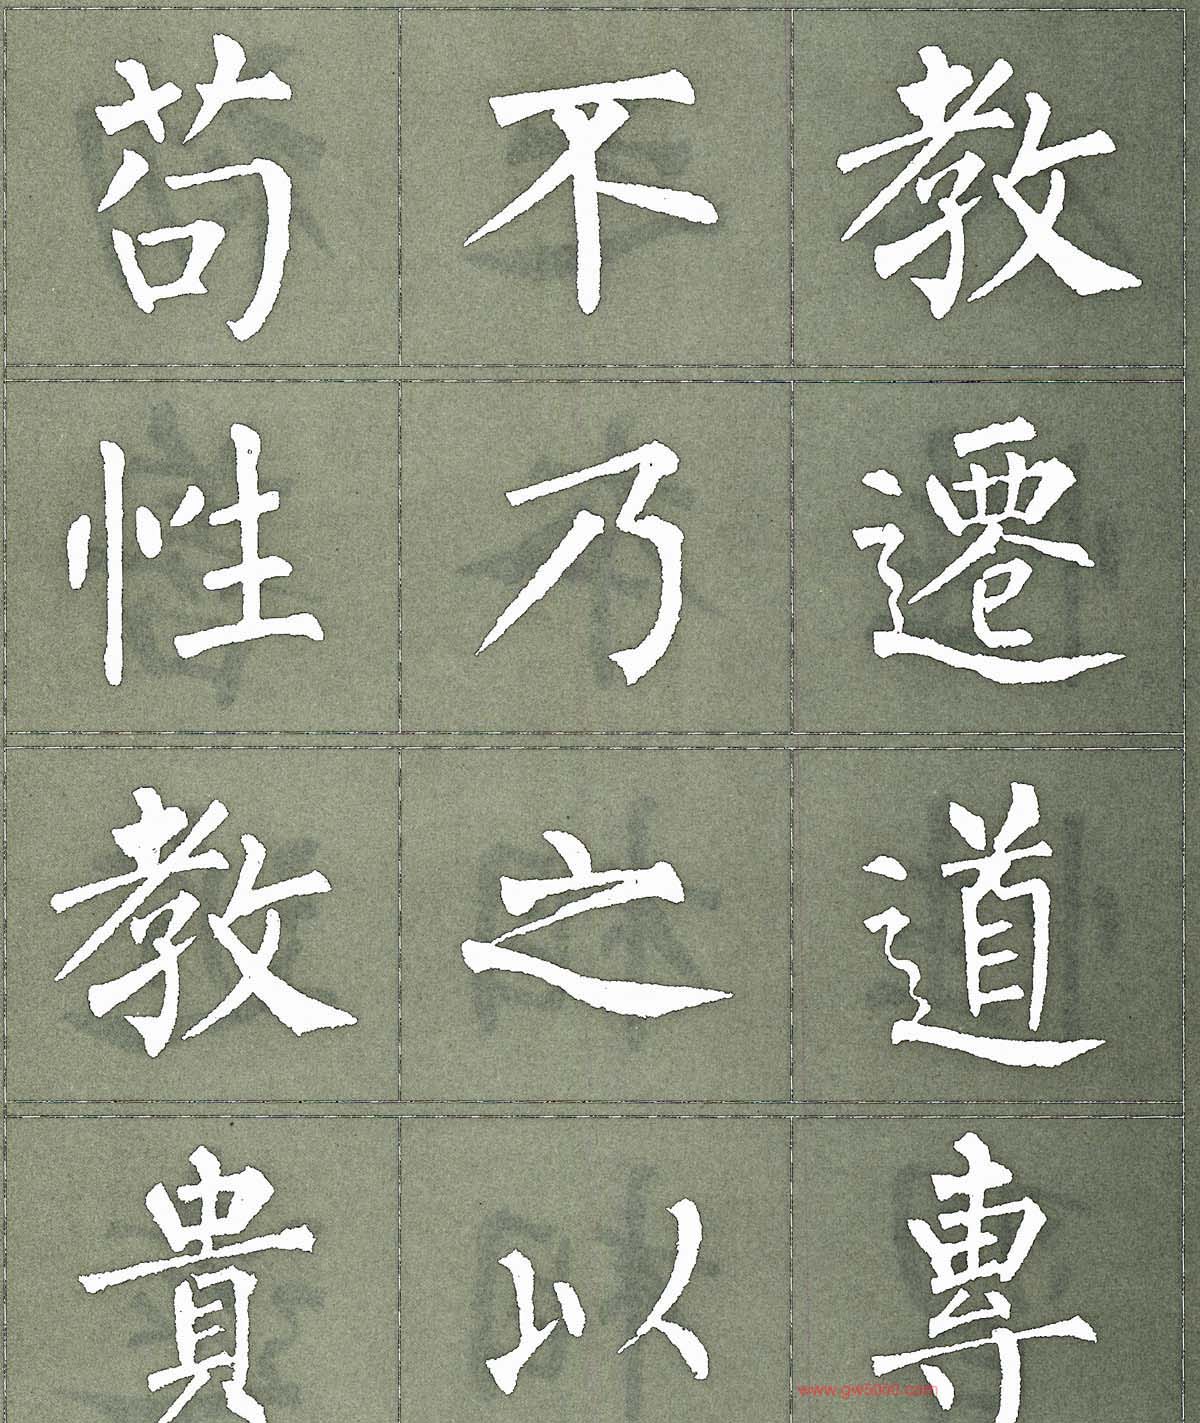 苟不教
性乃遷
教之道
貴以專
www.gw5000.com